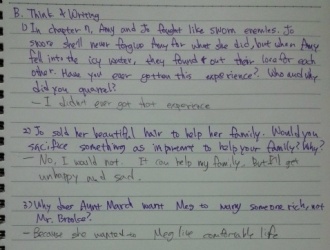 B. Think & Writing
1) In chapter 7, Amy and Jo fought like sworn enemies. Jo
swore she'll never forgive Amy for what she did, but when Amy
fell into the icy water, they found out their love for each
other. Have you ever gotten this experience? Who and why
did you quarrel?
- I didn't ever got that experience
2) Jo sold her beautiful hair to help her family. Would you
sacrifice something as important to help your family? Why?
- No, I would not. It can help my family, But I'll get
unhappy and sad.
3) Why does Aunt March want Meg to marry someone rich, not
Mr. Brooke?
- Because she wanted to Meg live comfortable life